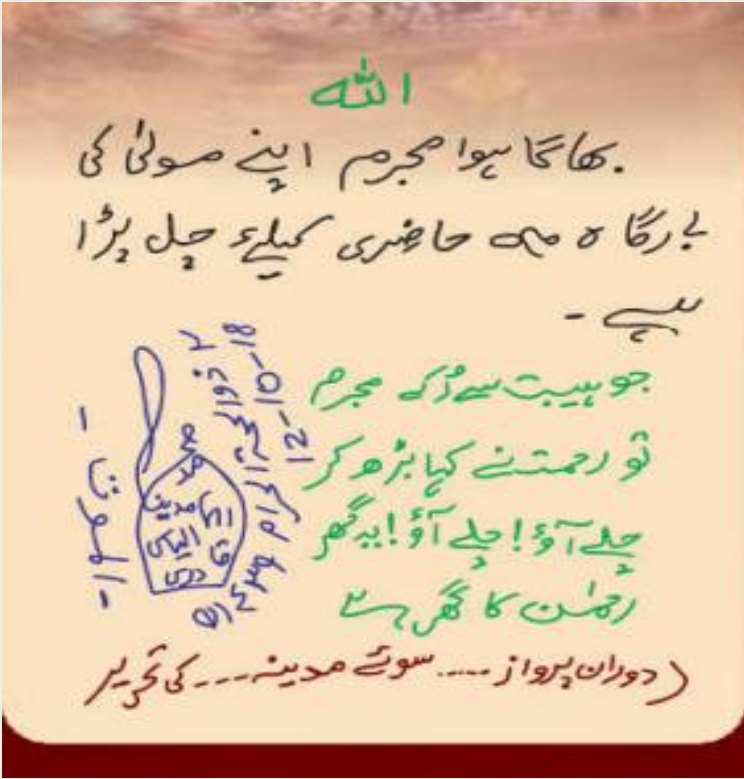 اللہ
بھاگا ہوا مجرم اپنے مولیٰ کی
بارگاہ میں حاضری کیلئے چل پڑا
ہے۔
جو ہیبت سے رُکے مجرم
تو رحمت نے کہا بڑھ کر
چلے آؤ! چلے آؤ! یہ گھر
رحمٰن کا گھر ہے
(دوران پرواز .... سوئے مدینہ --- کی تحریر
12-10-18
الموت